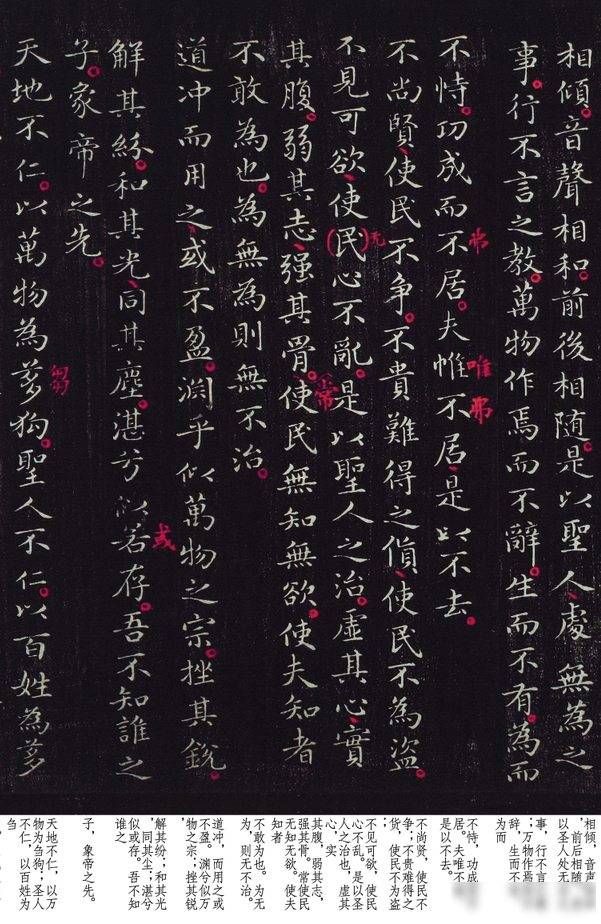 相傾。音聲相和。前後相隨。是以聖人、處無為之
事。行不言之教。萬物作焉而不辭。生而不有。為而
不恃。功成而不居。夫惟不居、是以不去。
弗
唯弗
不尚賢、使民不争。不貴難得之貨、使民不為盗。
不見可欲、使(民)心不亂。是以聖人之治。虛其心、實
无
其腹。弱其志、强其骨。使民無知無欲。使夫知者
常
不敢為也。為無為則無不治。
道冲而用之、或不盈。渊乎似萬物之宗。挫其銳。
解其紛。和其光、同其塵。湛兮似若存。吾不知誰之
或
子。象帝之先。
天地不仁。以萬物為芻狗。聖人不仁。以百姓為芻
相倾，音声
，前后相随
以圣人处无
事，行不言
；万物作焉
辞，生而不
为而
不恃，功成
居。夫唯不
是以不去。
不尚贤，使民不
争；不贵难得之
货，使民不为盗
不见可欲，使民
心不乱。是以圣
人之治也，虚其
心，实
其腹，弱其志，
强其骨。常使民
无知无欲，使夫
知者
不敢为也。为无
为，则无不治。
道冲，而用之或
不盈。渊兮似万
物之宗；挫其锐
解其纷；和其光
，同其尘；湛兮
似或存。吾不知
谁之
子，象帝之先。
天地不仁，以万
物为刍狗；圣人
不仁，以百姓为
刍